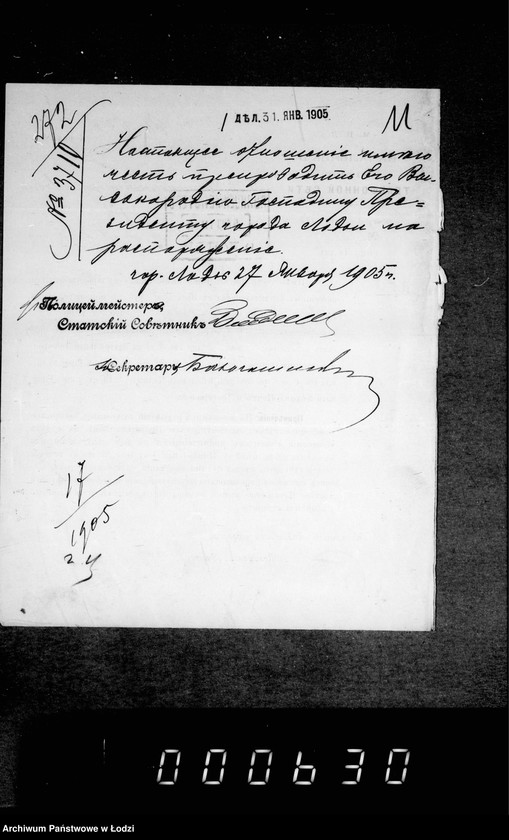 272
№ 3710
ДѢЛ. 31. ЯНВ. 1905
Настоящее отношеніе имѣю
честь препроводить Его Выс-
окородію Господину Пре=
зиденту города Лодзи на
распоряженіе.
гор. Лодзь 27 Января 1905 г.
Полицеймейстеръ,
Статскій Совѣтникъ
Секретарь
17
1905
000630
Archiwum Państwowe w Łodzi